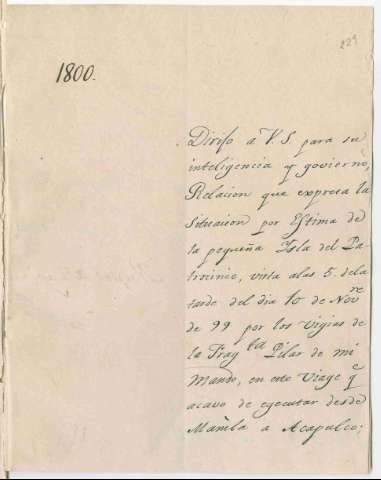 229
1800.
Dirijo a V.S. para su
inteligencia y govierno,
Relacion que expresa la
Situacion por Estima de
la pequeña Isla del Pa-
trocinio, vista alas 5. dela
tarde del dia 10 de Nov.re
de 99 por los vigias de
la Frag.ta Pilar de mi
Mando, en este Viage q.e
acavo de ejecutar desde
Manila a Acapulco;